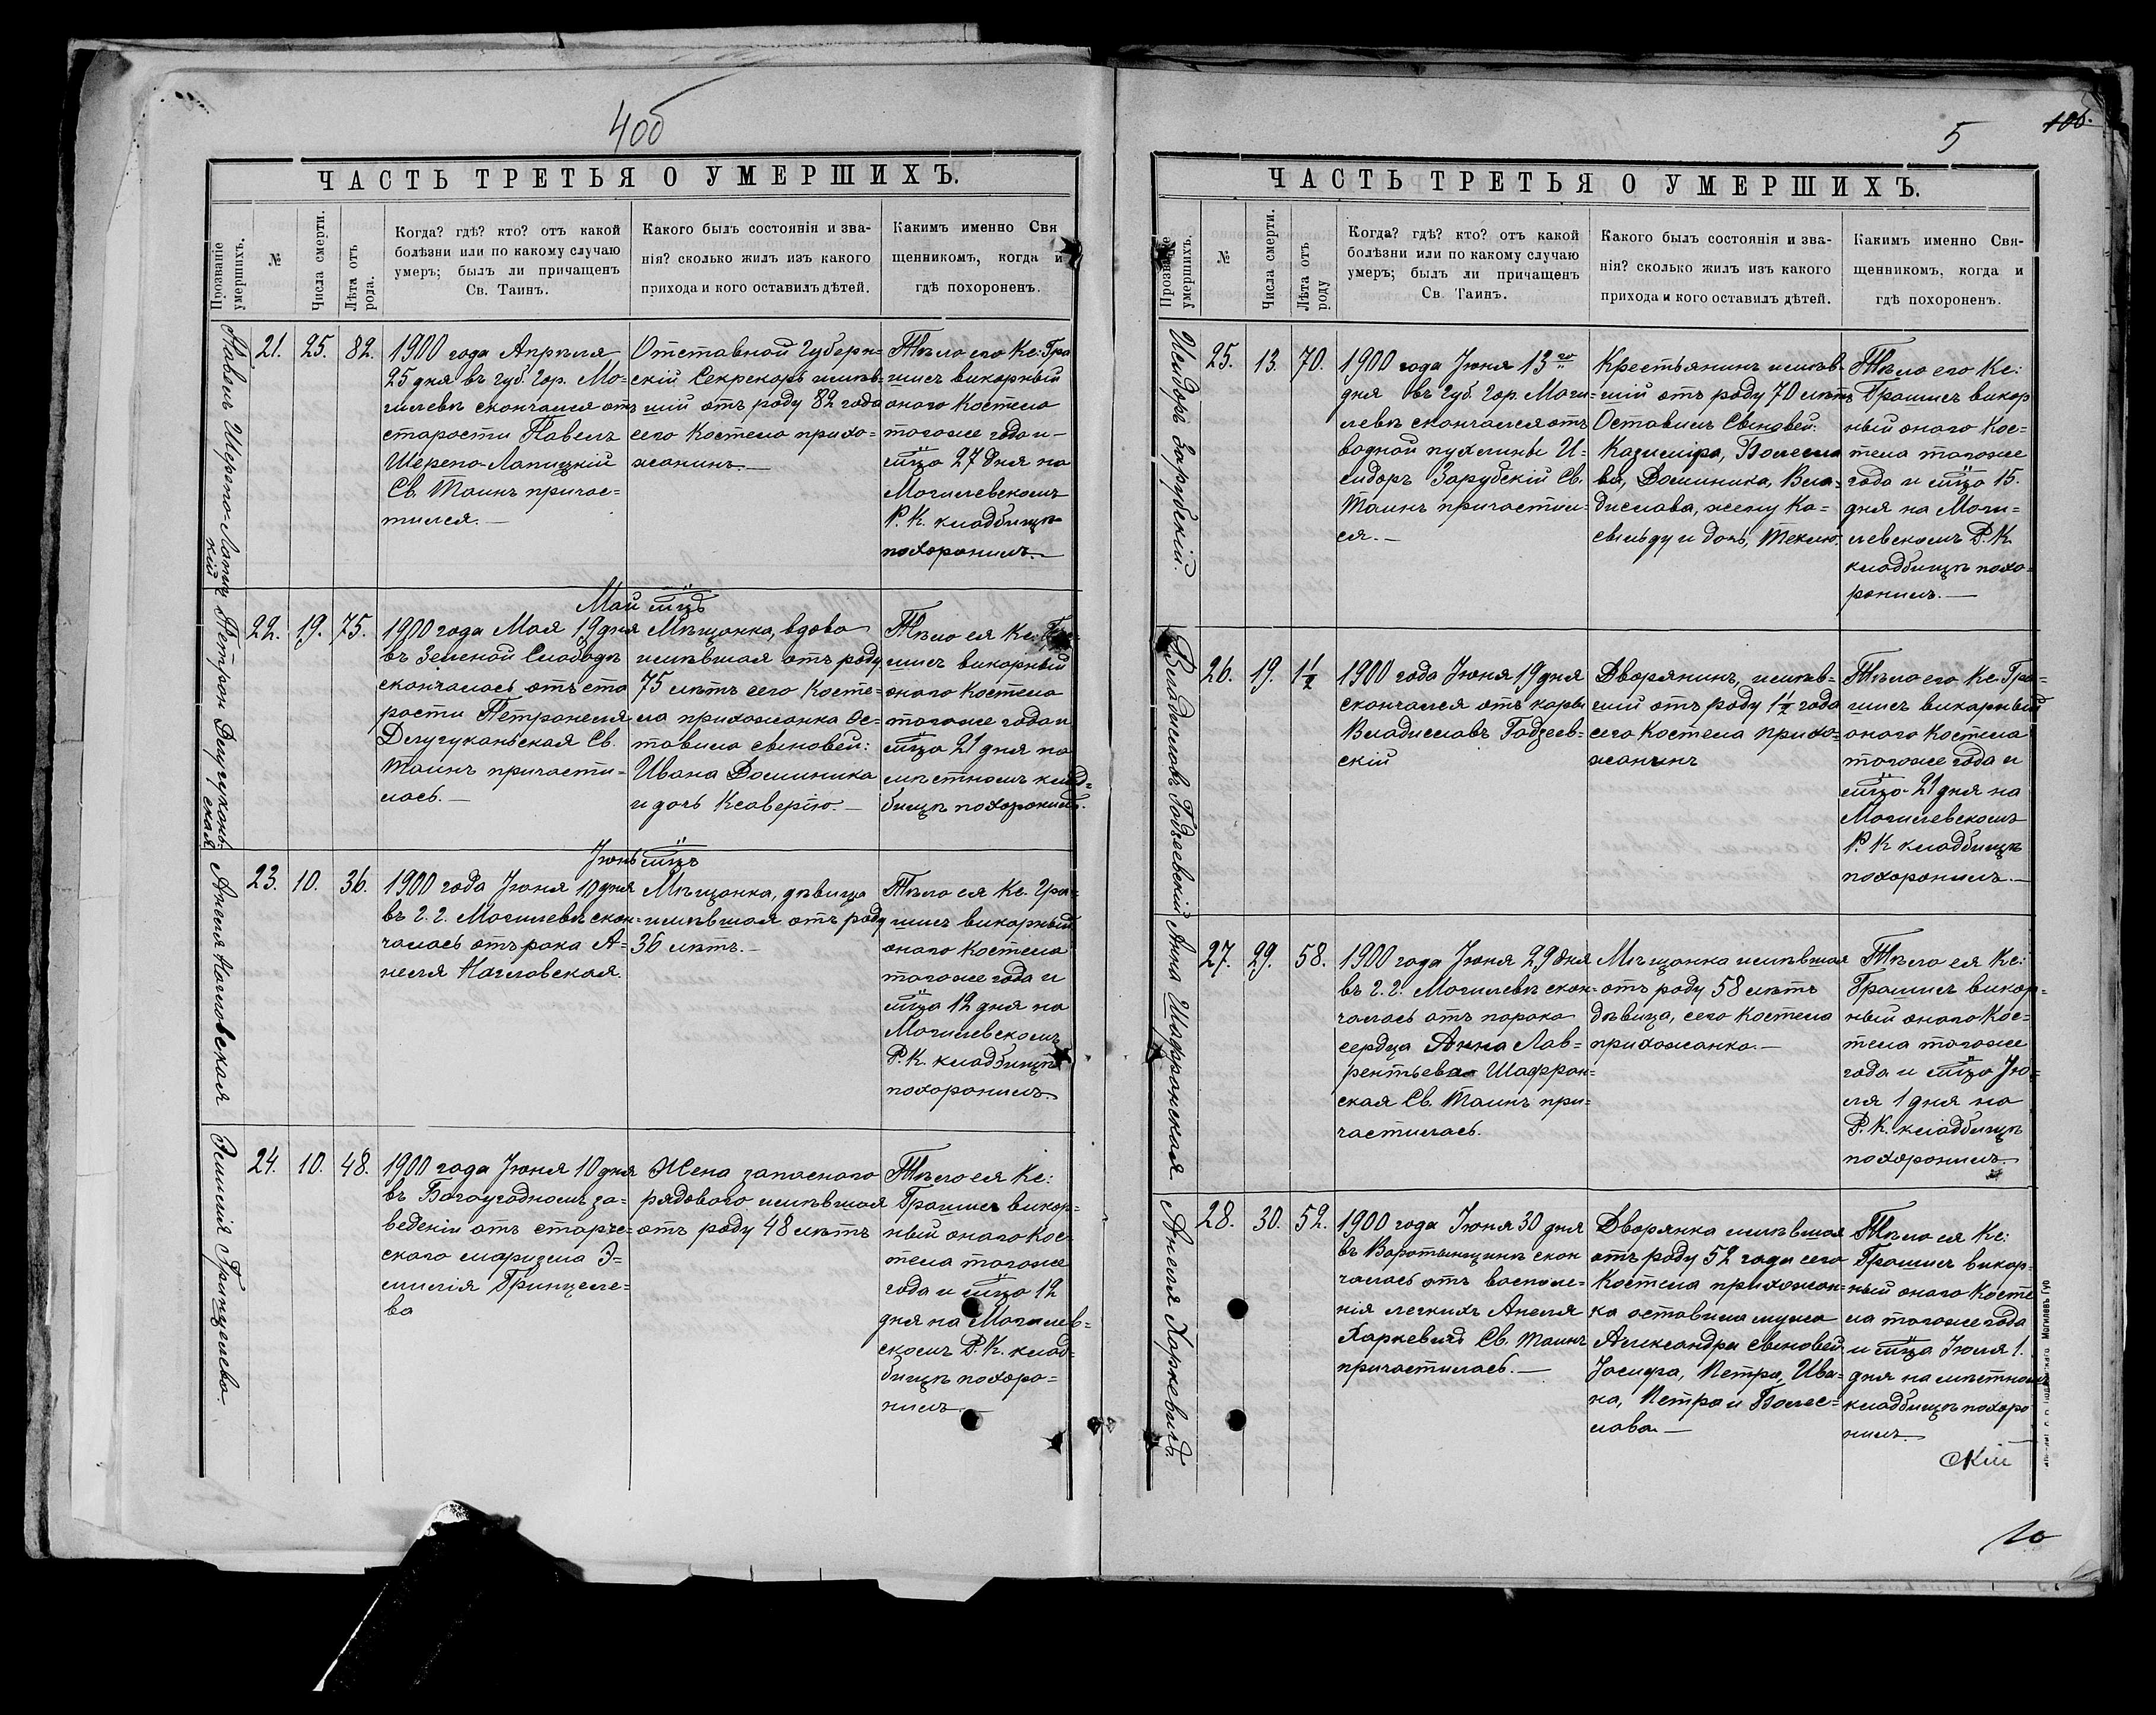 4об
ЧАСТЬ ТРЕТЬЯ О УМЕРШИХЪ.
Прозваніе умершихъ.
№
Числа смерти.
Лѣта отъ рода.
Когда? гдѣ? кто? отъ какой
болѣзни или по какому случаю
умеръ; былъ ли причащенъ
Св. Таинъ.
Какого былъ состоянія и зва-
нія? сколько жилъ изъ какого
прихода и кого оставилъ дѣтей.
Каким именно Свя
щенникомъ, когда и
гдѣ похороненъ.
Павелъ Шерепо-Лапиц
кій
21.
25.
82.
1900 года Апрѣля
25 дня въ губ. гор. Мо-
гилевѣ скончался отъ
старости Павелъ
Шерепо-Лапицкій
Св. Таинъ причас=
тился.—
Отставной Губерн=
скій Секретарь имѣв-
шій отъ роду 82 года
сего Костела прихо=
жанинъ.—
Тѣло его Кс: Гра
лисъ викарный
онаго Костела
тогоже года и-
м̃ца 27 дня на
Могилевскомъ
Р. К. кладбищѣ
похоронилъ.—
Май м̃цъ
Петронеля Делугукань=
ская
22.
19.
75.
1900 года Мая 19 дня
въ Зеленой Слободѣ
скончалась отъ ста
рости Петронеля
Делугуканьская Св.
Таинъ причасти=
лась.—
Мѣщанка, вдова
имѣвшая отъ роду
75 лѣтъ сего Косте=
ла прихожанка Ос=
тавила сыновей:
Ивана Доминика
и дочь Ксаверію.—
Тѣло ея Кс:
лисъ викарный
онаго Костела
тогоже года и
м̃ца 21 дня на
мѣстномъ клад=
бищѣ похоронилъ.
Іюнь м̃цъ
Анеля Нагловская
23.
10.
36.
1900 года Іюня 10 дня
въ г. г. Могилевѣ скон=
чалась отъ рака А=
неля Нагловская.
Мѣщанка, дѣвица
имѣвшая отъ роду
36 лѣтъ.—
Тѣло ея Кс. Гра-
лисъ викарный
онаго Костела
тогоже года и
м̃ца 12 дня на
Могилевскомъ
Р. К. кладбищѣ
похоронилъ.
Эмилія Гринцелева.
24.
10.
48.
1900 года Іюня 10 дня
въ Богоугодномъ за=
веденіи отъ старче=
скаго маразма Э=
милія Гринцеле=
ва
Жена запаснаго
рядоваго имѣвшая
отъ роду 48 лѣтъ
Тѣло ея Кс:
Гралисъ викар=
ный онаго Кос=
тела тогоже
года и м̃ца 12
дня на Могилев=
скомъ Р. К. клад=
бищѣ похоро=
нилъ.
5
10об.
ЧАСТЬ ТРЕТЬЯ О УМЕРШИХЪ.
Прозваніе умершихъ.
№
Числа смерти.
Лѣта отъ роду
Когда? гдѣ? кто? отъ какой
болѣзни или по какому случаю
умеръ; былъ ли причащенъ
Св. Таинъ.
Какого былъ состоянія и зва-
нія? сколько жилъ изъ какого
прихода и кого оставилъ дѣтей.
Каким именно Свя-
щенникомъ, когда и
гдѣ похороненъ.
Исидоръ Зарубскій.
25.
13.
70.
1900 года Іюня 13го
дня въ губ. гор. Моги=
левѣ скончался отъ
водной пухлины И=
сидоръ Зарубскій Св.
Таинъ причастил=
ся.—
Крестьянинъ имѣв-
шій отъ роду 70 лѣтъ
Оставилъ Сыновей:
Казиміра, Болесла
ва, Доминика, Вла=
дислава, жену Ка=
сильду и дочь, Теклю.
Тѣло его Кс:
Гралисъ викар
ный онаго Кос=
тела тогоже
года и м̃ца 15.
дня на Моги=
левскомъ Р. К.
кладбищѣ похо=
ронилъ.—
Владиславъ Годзевскій
26.
19.
1½
1900 года Іюня 19 дня
скончался отъ коры
Владиславъ Годзев=
скій
Дворянинъ, имѣв=
шій отъ роду 1½ года
сего Костела прихо=
жанинъ
Тѣло его Кс. Гра=
лисъ викарный
онаго Костела
тогоже года и
м̃ца 21 дня на
Могилевскомъ
Р. К кладбищѣ
похоронилъ.—
Анна Шафронская
27.
29.
58.
1900 года Іюня 29 дня
въ г. г. Могилевѣ скон=
чалась отъ порока
сердца Анна Лав=
рентьева Шафрон=
ская Св. Таинъ при=
частилась.
Мѣщанка имѣвшая
отъ роду 58 лѣтъ
дѣвица, сего Костела
прихожанка.—
Тѣло ея Кс:
Гралисъ викар=
ный онаго Кос=
тела тогоже
года и м̃ца Ію=
ля 1 дня на
Р. К. кладбищѣ
похоронилъ.
Анеля Харкевичъ
28.
30.
52.
1900 года Іюня 30 дня
въ Воротыщинѣ скон
чалась отъ воспале=
нія легкихъ Анеля
Харкевичъ Св. Таинъ
причастилась.—
Дворянка имѣвшая
отъ роду 52 года сего
Костела прихожан=
ка оставила мужа
Александра сыновей
Іосифа, Петра, Ива=
на, Петра и Болес=
лава.—
Тѣло ея Кс:
Гралисъ викар=
ный онаго Косте
ла тогоже года
и м̃ца Іюля 1.
дня на мѣстномъ
кладбищѣ похоро
нилъ.
скій
10